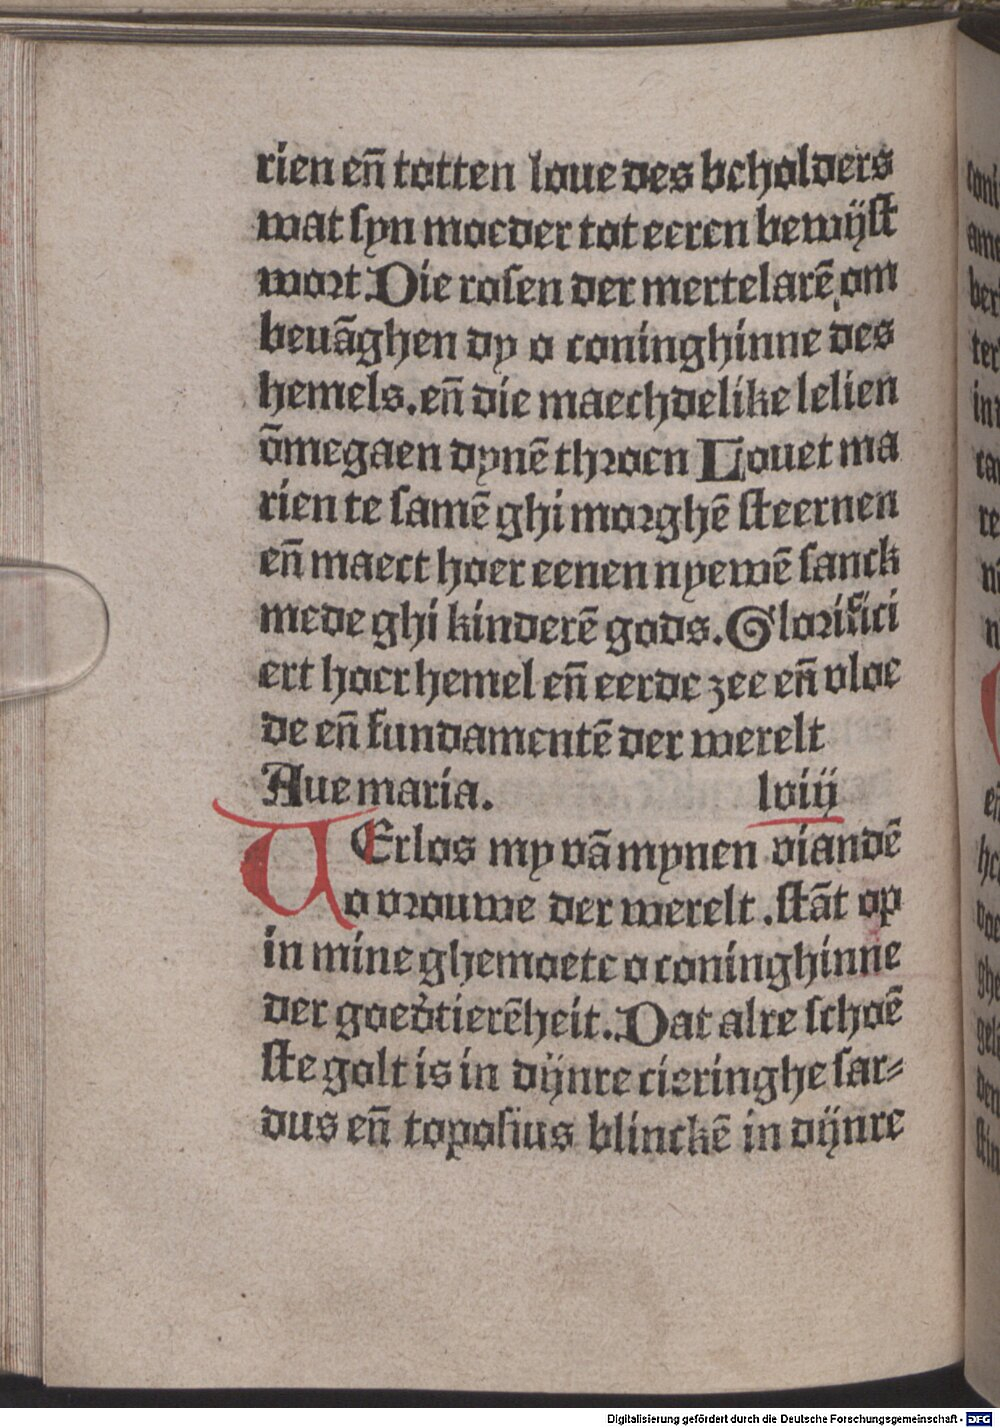 rien en̄ totten loue des beholders
wat syn moeder tot eeren bewijst
wort Die rosen der mertelarē om
beuāghen dy o coninghinne des
hemels. en̄ die maechdelike lelien
ōmegaen dynē throen Louet ma
rien te samē ghi morghē steernen
en̄ maect hoer eenen nyewē sanck
mede ghi kinderē gods. Glorifici
ert hoer hemel en̄ eerde zee en̄ vloe
de en̄ fundamentē der werelt
Aue maria. lviij
VErlos my vā mynen viandē
o vrouwe der werelt. stāt op
in mine ghemoete o coninghinne
der goedtierēheit. Dat alre schoē
ste golt is in dijnre cieringhe sar-
dus en̄ toposius blinckē in dijnre
Digitalisierung gefördert durch die Deutsche Forschungsgemeinschaft - DFG